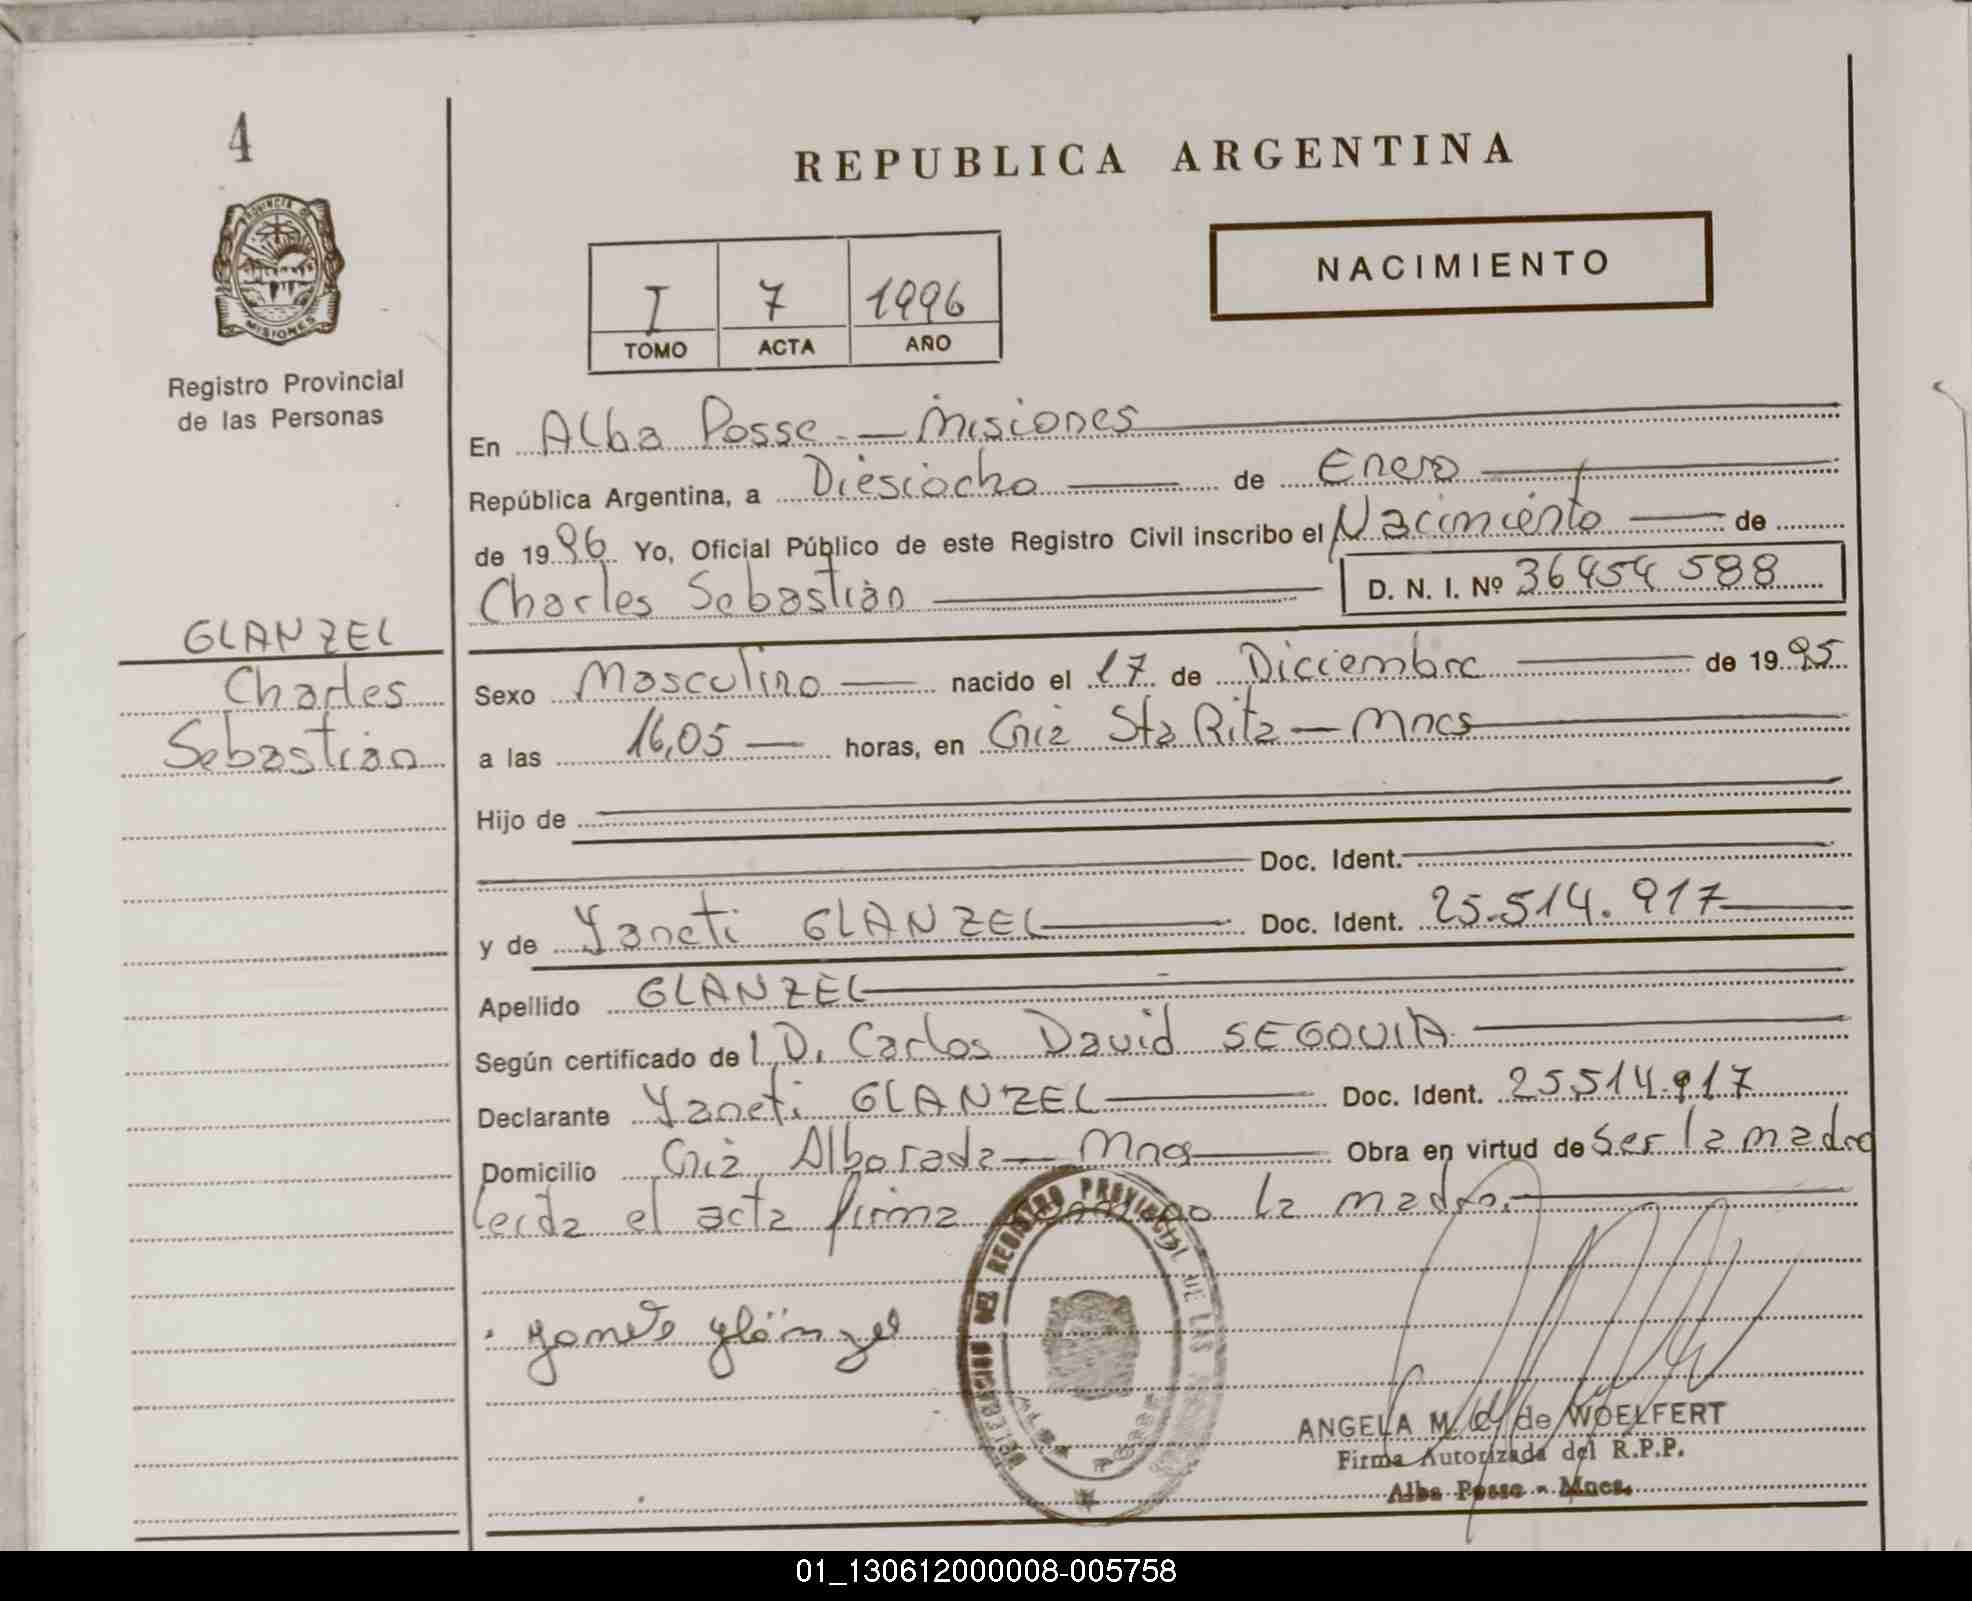 4
PROVINCIA DE
MISIONES
Registro Provincial
de las Personas
GLANZEL
Charles
Sebastián
REPUBLICA ARGENTINA
NACIMIENTO
I 7 1996
TOMO ACTA AÑO
En Alba Posse - Misiones
República Argentina, a Diesiocho de Enero
de 1996 Yo, Oficial Público de este Registro Civil inscribo el Nacimiento de
Charles Sebastián D. N. I. Nº 36454588
Sexo Masculino nacido el 17 de Diciembre de 1995
a las 16,05 horas, en Cnia Sta Rita - Mnes
Hijo de
Doc. Ident.
y de Yaneti GLANZEL Doc. Ident. 25.514.917
Apellido GLANZEL
Según certificado de l D. Carlos David SEGOVIA
Declarante Yaneti GLANZEL Doc. Ident. 25.514.917
Domicilio Cnia Alborada - Mnes Obra en virtud de Ser la madre
leida el acta firma la madre.
DEL REGISTRO PROVINCIAL DE LAS
ANGELA M. C. de WOELFERT
Firma Autorizada del R.P.P.
Alba Posse - Mnes.
01_130612000008-005758